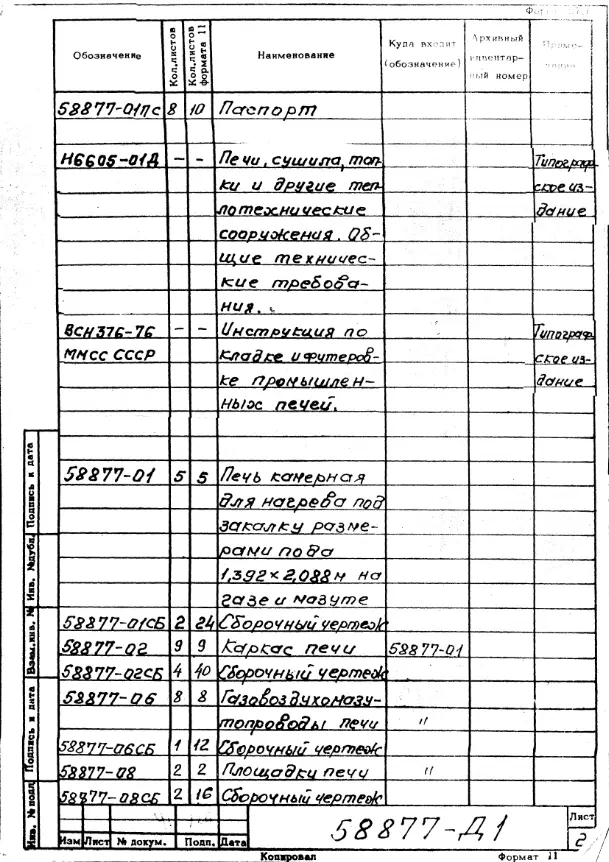 Обозначение Кол.листов Кол.листов формата 11 Наименование Куда входит (обозначение) Архивный инвентарный номер
58877-01ПС 8 10 Паспорт
Н6605-01Д – – Печи, сушила, топ- Типограф-
ки и другие теп- ское из-
лотехнические дание
сооружения. Об-
щие техничес-
кие требова-
ния.
ВСН376-76 – – Инструкция по Типограф-
ММСС СССР кладке и футеров- ское из-
ке промышлен- дание
ных печей.
58877-01 5 5 Печь камерная
для нагрева под
закалку разме-
рами пода
1,392×2,088м на
газе и мазуте
58877-01СБ 2 24 Сборочный чертеж
58877-02 9 9 Каркас печи 58877-01
58877-02СБ 4 40 Сборочный чертеж
58877-06 8 8 Газовоздухомазу-
топроводы печи "
58877-06СБ 1 12 Сборочный чертеж
58877-08 2 2 Площадки печи "
58877-08СБ 2 16 Сборочный чертеж
Подпись и дата
Инв. №дубл.
Взам.инв. №
Подпись и дата
Инв. № подл
Изм Лист № докум. Подп. Дата
58877-Д1
Лист
2
Копировал Формат 11